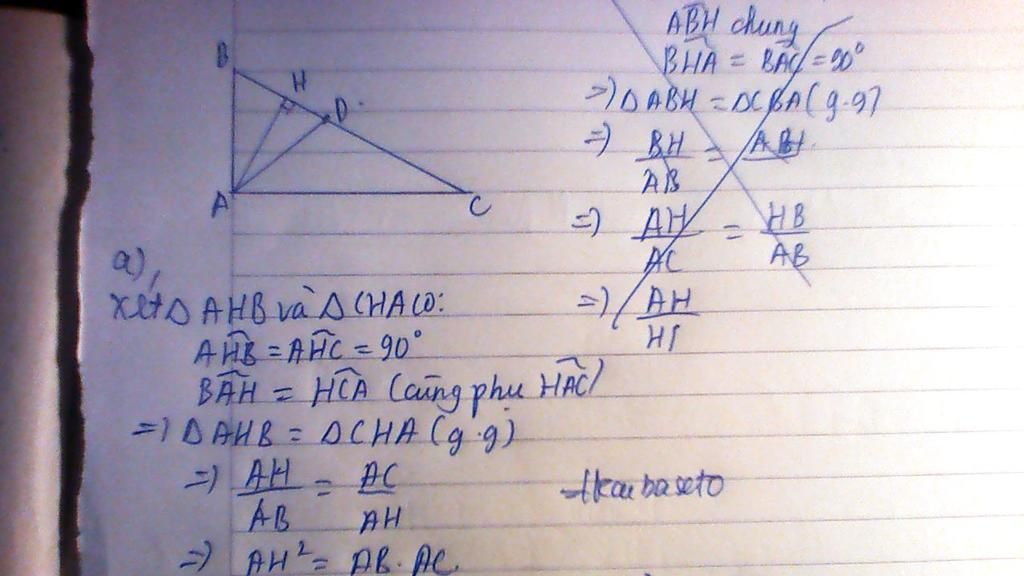 B
H
D
A
C
a),
Xét Δ AHB và Δ CHA có:
AHB̂ = AHĈ = 90°
BÂH = HĈA (cùng phụ HÂC)
=> Δ AHB = Δ CHA (g.g)
=> AH/AB = AC/AH
=> AH² = AB. AC
ABH chung
BHA = BAC = 90°
=> Δ ABH = Δ CBA (g.g)
=> BH/AB =
=> AH/AC = HB/AB
=> AH